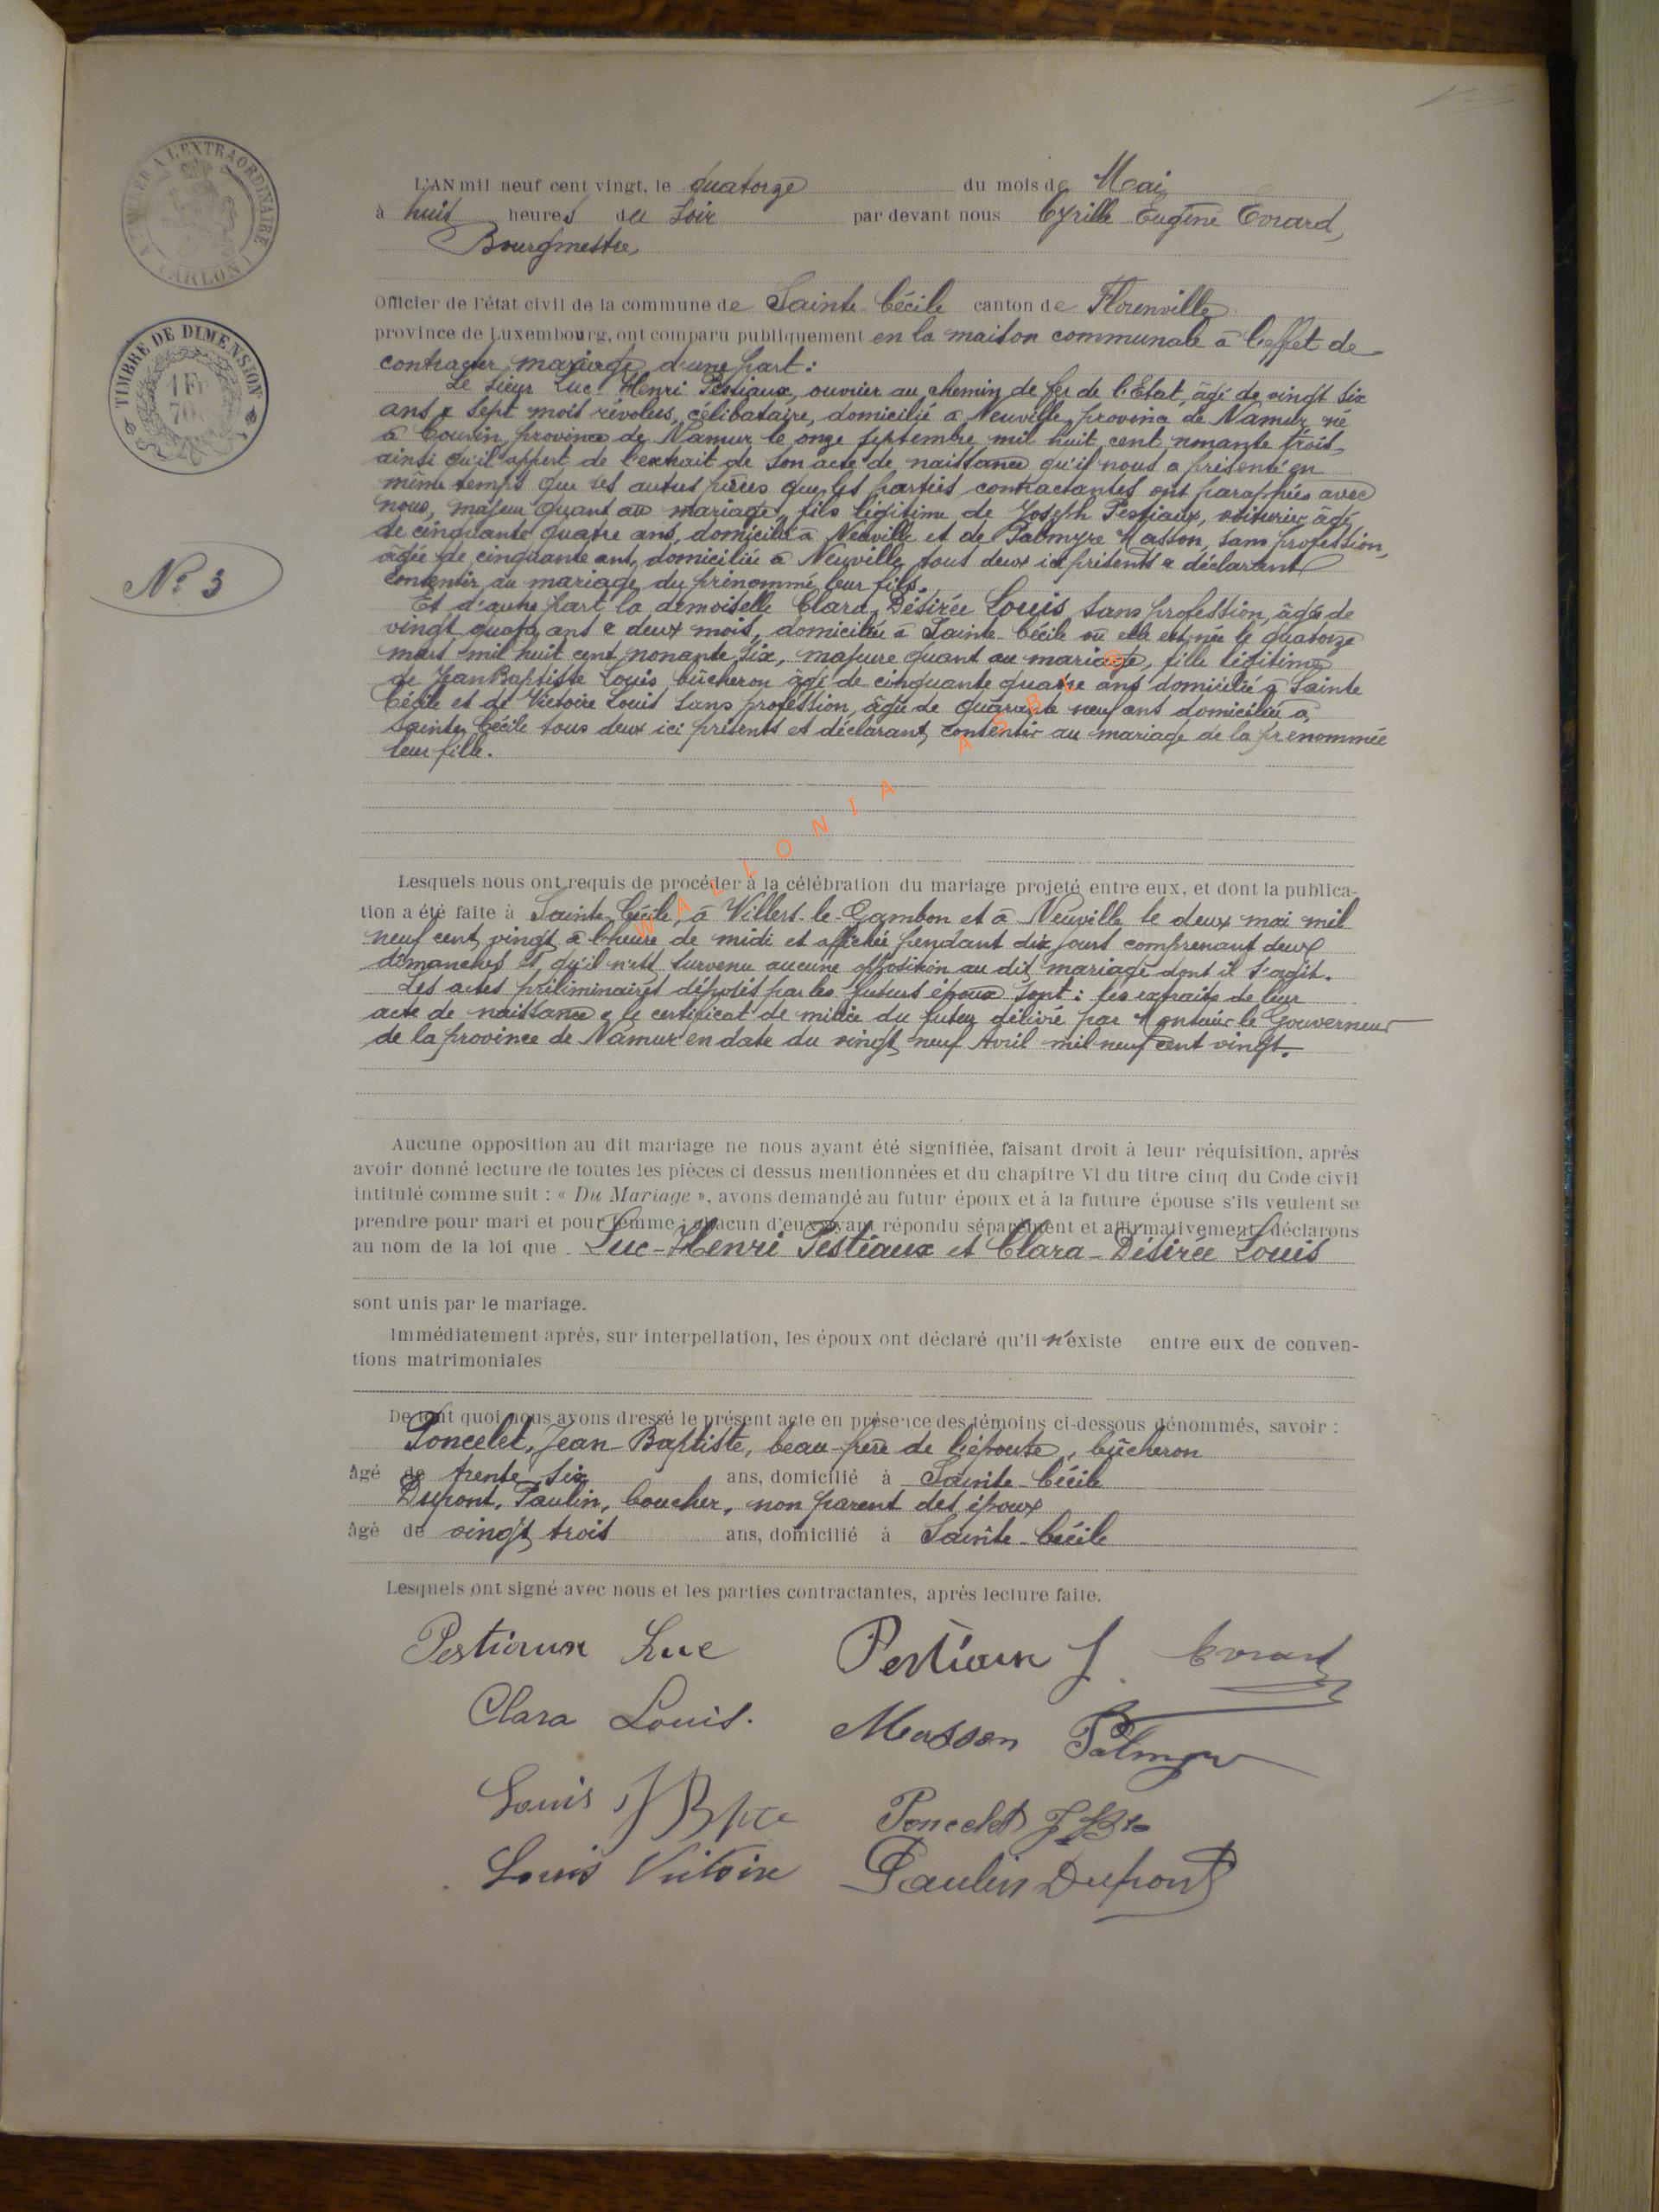 L'AN mil neuf cent vingt, le quatorze du mois de Mai
à huit heures du soir par devant nous Cyrille Eugène Evrard,
Bourgmestre,
Officier de l'état civil de la commune de Sainte-Cécile canton de Florenville
province de Luxembourg, ont comparu publiquement en la maison communale à l'effet de
contracter mariage d'une part :
Le sieur Luc-Henri Pestiaux, ouvrier au chemin de fer de l'Etat, âgé de vingt six
ans & sept mois révolus, célibataire, domicilié à Neuville, province de Namur, né
à Couvin, province de Namur le onze septembre mil huit cent nonante trois,
ainsi qu'il appert de l'extrait de son acte de naissance qu'il nous a présenté en
même temps que les autres pièces que les parties contractantes ont paraphées avec
nous, majeur quant au mariage, fils légitime de Joseph Pestiaux, voiturier âgé
de cinquante quatre ans, domicilié à Neuville et de Palmyre Masson, sans profession,
âgée de cinquante ans, domiciliée à Neuville, tous deux ici présents & déclarant
consentir au mariage du prénommé leur fils.
Et d'autre part la demoiselle Clara, Désirée Louis sans profession, âgée de
vingt quatre ans & deux mois, domiciliée à Sainte-Cécile où elle est née le quatorze
mars mil huit cent nonante six, majeure quant au mariage, fille légitime
de Jean Baptiste Louis bûcheron âgé de cinquante quatre ans domicilié à Sainte
Cécile et de Victoire Louis sans profession, âgée de quarante neuf ans domiciliée à
Sainte Cécile tous deux ici présents et déclarant consentir au mariage de la prénommée
leur fille.
Lesquels nous ont requis de procéder à la célébration du mariage projeté entre eux, et dont la publica-
tion a été faite à Sainte-Cécile, à Villers-le-Gambon et à Neuville le deux mai mil
neuf cent vingt à l'heure de midi et affichée pendant dix jours comprenant deux
dimanches et qu'il n'est survenu aucune opposition au dit mariage dont il s'agit.
Les actes préliminaires déposés par les futurs époux sont : les extraits de leur
acte de naissance & le certificat de milice du futur délivré par Monsieur le Gouverneur
de la province de Namur en date du vingt neuf Avril mil neuf cent vingt.
Aucune opposition au dit mariage ne nous ayant été signifiée, faisant droit à leur réquisition, après
avoir donné lecture de toutes les pièces ci dessus mentionnées et du chapitre VI du titre cinq du Code civil
intitulé comme suit : « Du Mariage », avons demandé au futur époux et à la future épouse s'ils veulent se
prendre pour mari et pour femme ; chacun d'eux ayant répondu séparément et affirmativement, déclarons
au nom de la loi que Luc-Henri Pestiaux et Clara-Désirée Louis
sont unis par le mariage.
Immédiatement après, sur interpellation, les époux ont déclaré qu'il n'existe entre eux de conven-
tions matrimoniales
De tout quoi nous avons dressé le présent acte en présence des témoins ci-dessous dénommés, savoir :
Poncelet, Jean-Baptiste, beau-frère de l'épouse, bûcheron
âgé de trente six ans, domicilié à Sainte-Cécile
Dupont, Paulin, boucher, non parent des époux
âgé de vingt trois ans, domicilié à Sainte-Cécile
Lesquels ont signé avec nous et les parties contractantes, après lecture faite.
Pestiaux Luc Pestiaux J Evrard
Clara Louis. Masson Palmyre
Louis J Bpte Poncelet J Bte
Louis Victoire Paulin Dupont
TIMBRE A L'EXTRAORDINAIRE
ARLON
TIMBRE DE DIMENSION
1 Fr
70
N° 3
WALLONIA ASBL ©